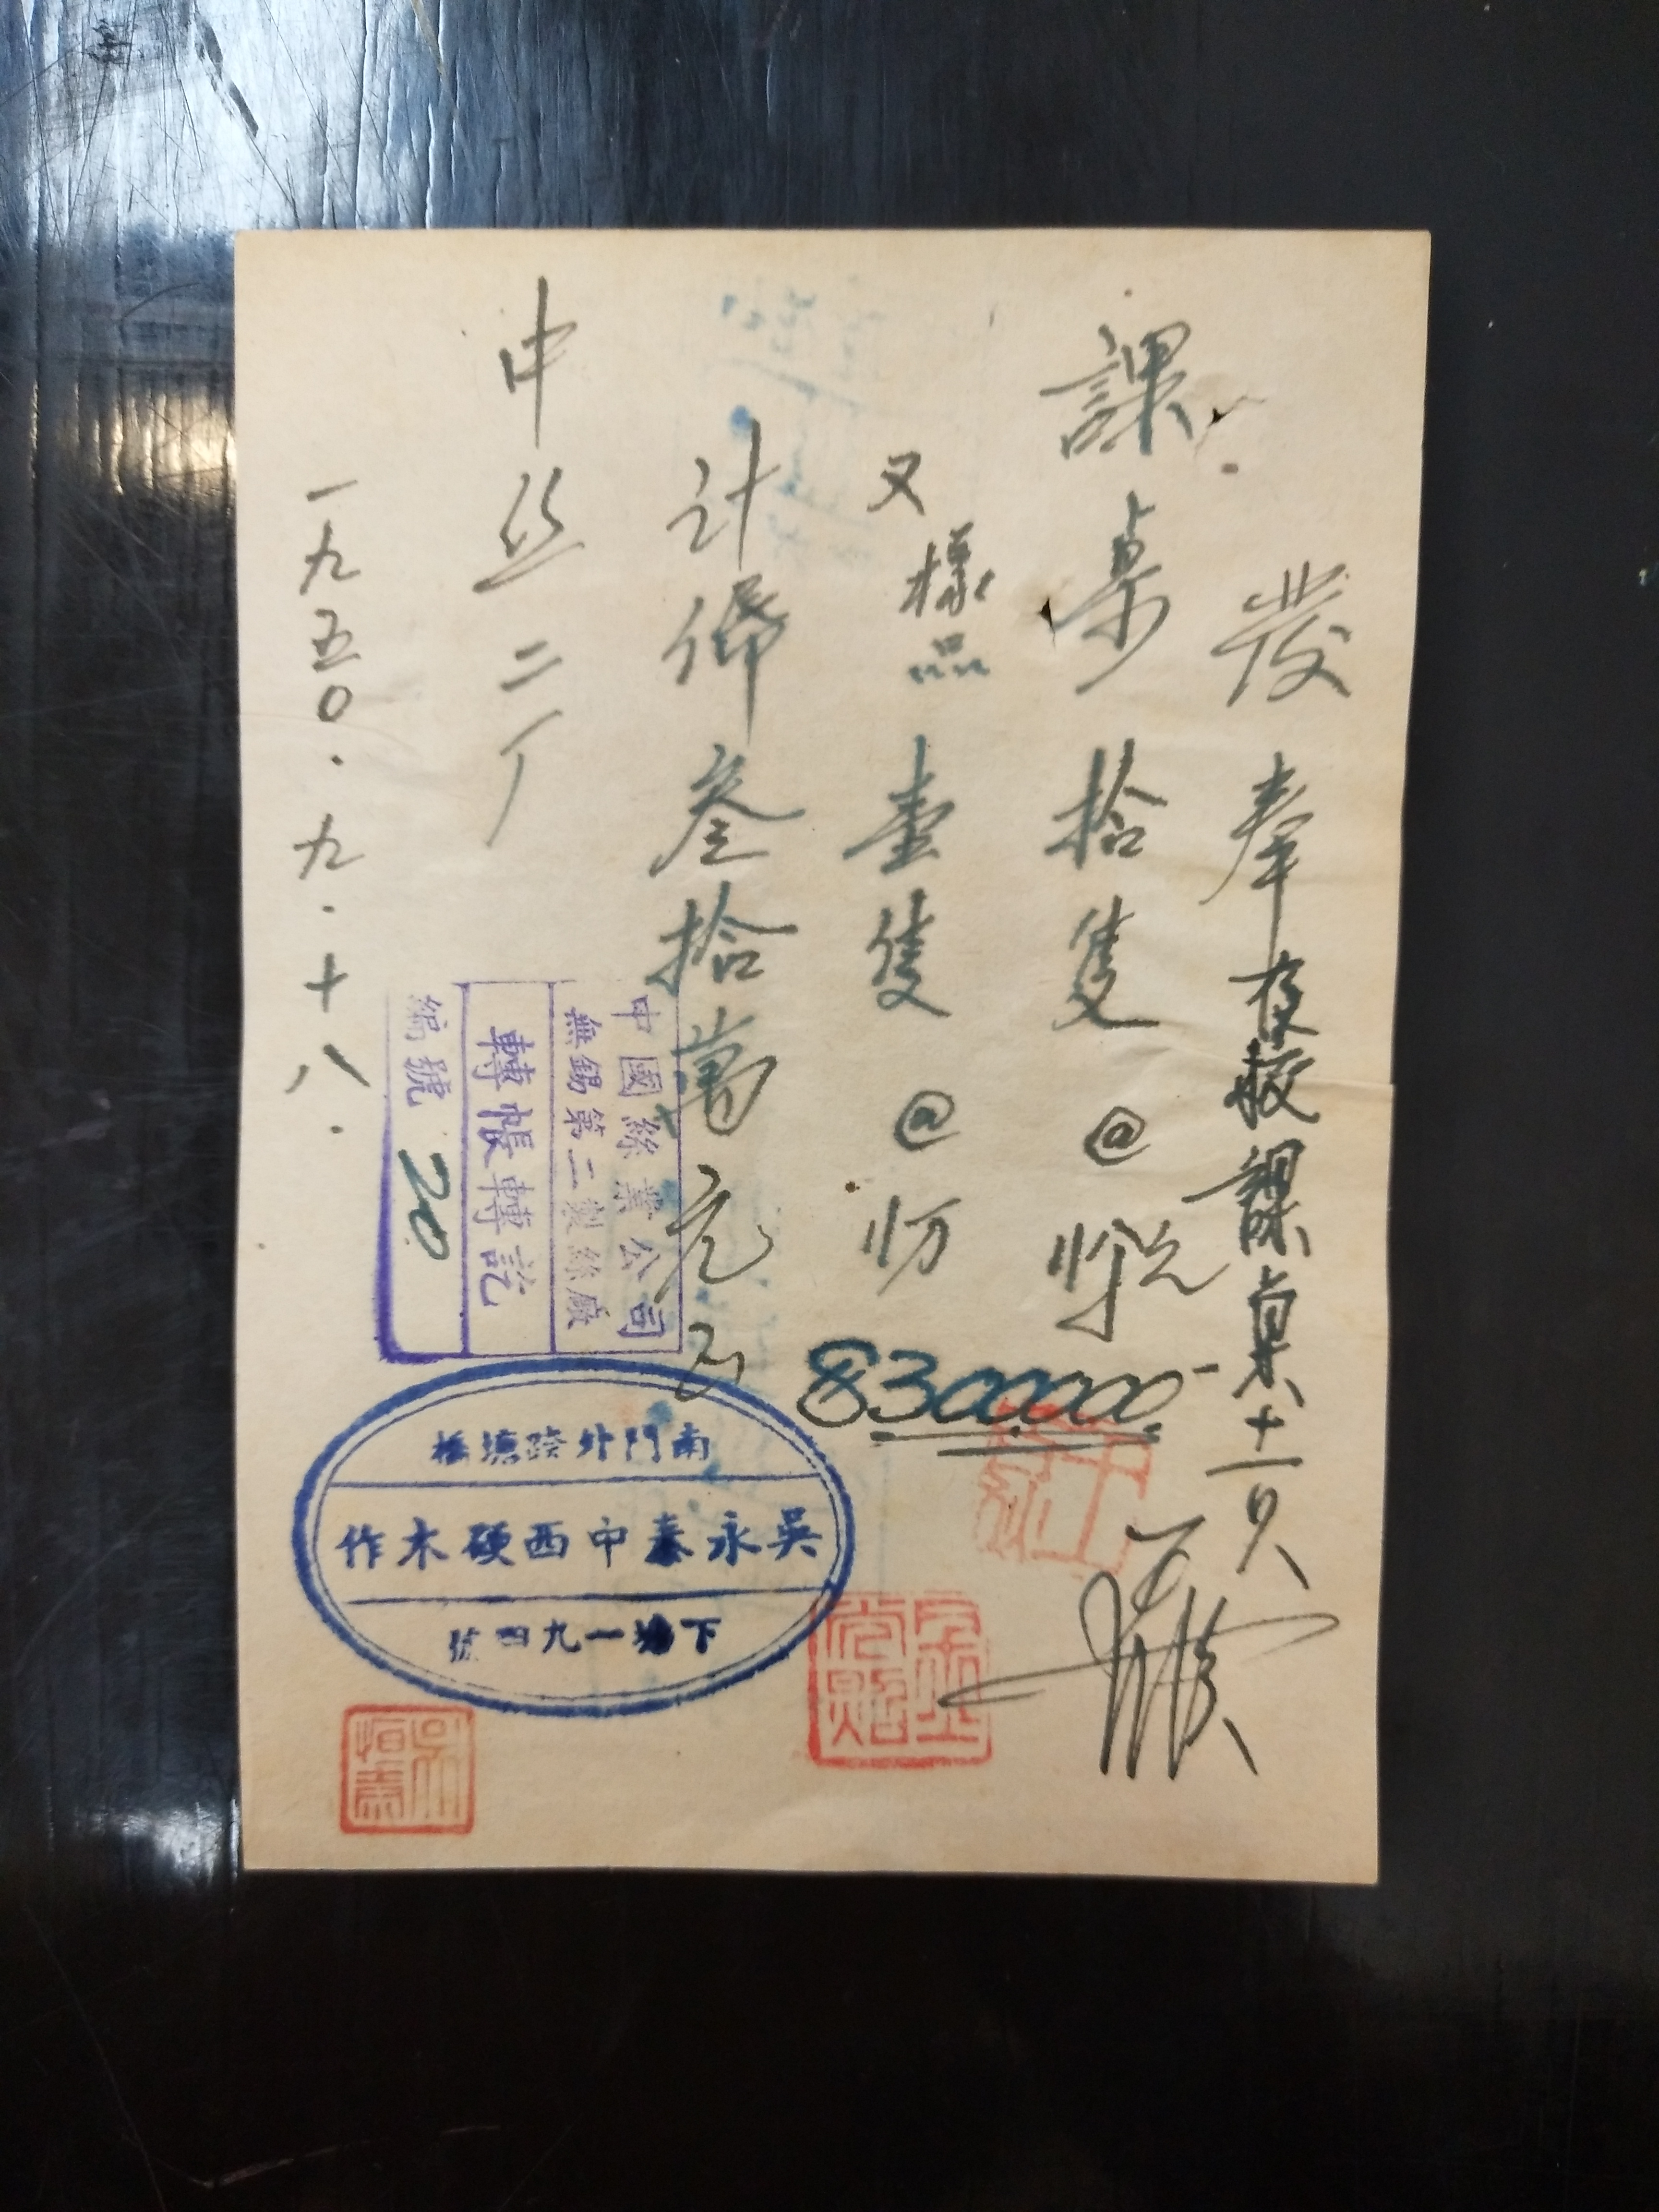 發奉
夜校課桌十一只
課桌拾隻@
又樣品壹隻@
8300000-
計幣叁拾萬元正
中丝二厂
一九五〇.九.十八.
中國絲業公司
無錫第二製絲廠
轉帳轉訖
編號 20
南門外
吳永泰中西硬木作
下塘一九四號